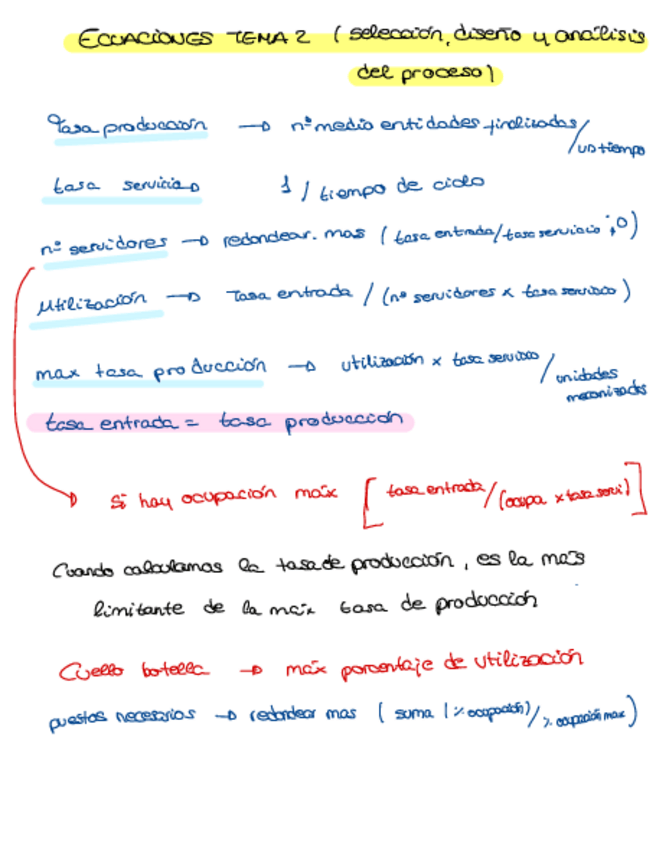 ECUACIONES TEMA 2 (selección, diseño y análisis
del proceso)
Tasa producción → nº medio entidades finalizadas/
un tiempo
tasa servicio 1 / tiempo de ciclo
nº servidores → redondear.mas (tasa entrada/tasa servicio ; 0)
Utilización → Tasa entrada / (nº servidores x tasa servicio)
max tasa producción → utilización x tasa servicio /
unidades
mecanizadas
tasa entrada = tasa producción
Si hay ocupación máx [tasa entrada/(ocupa x tasa servi)]
Cuando calculamos la tasa de producción, es la más
limitante de la máx tasa de producción
Cuello botella → máx porcentaje de utilización
puestos necesarios → redondear mas (suma (% ocupación)/% ocupación max)